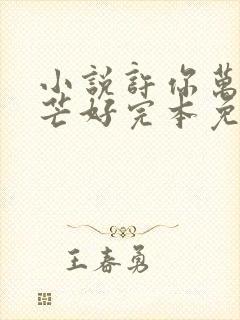 小說許你萬
芒好完本免
王春勇